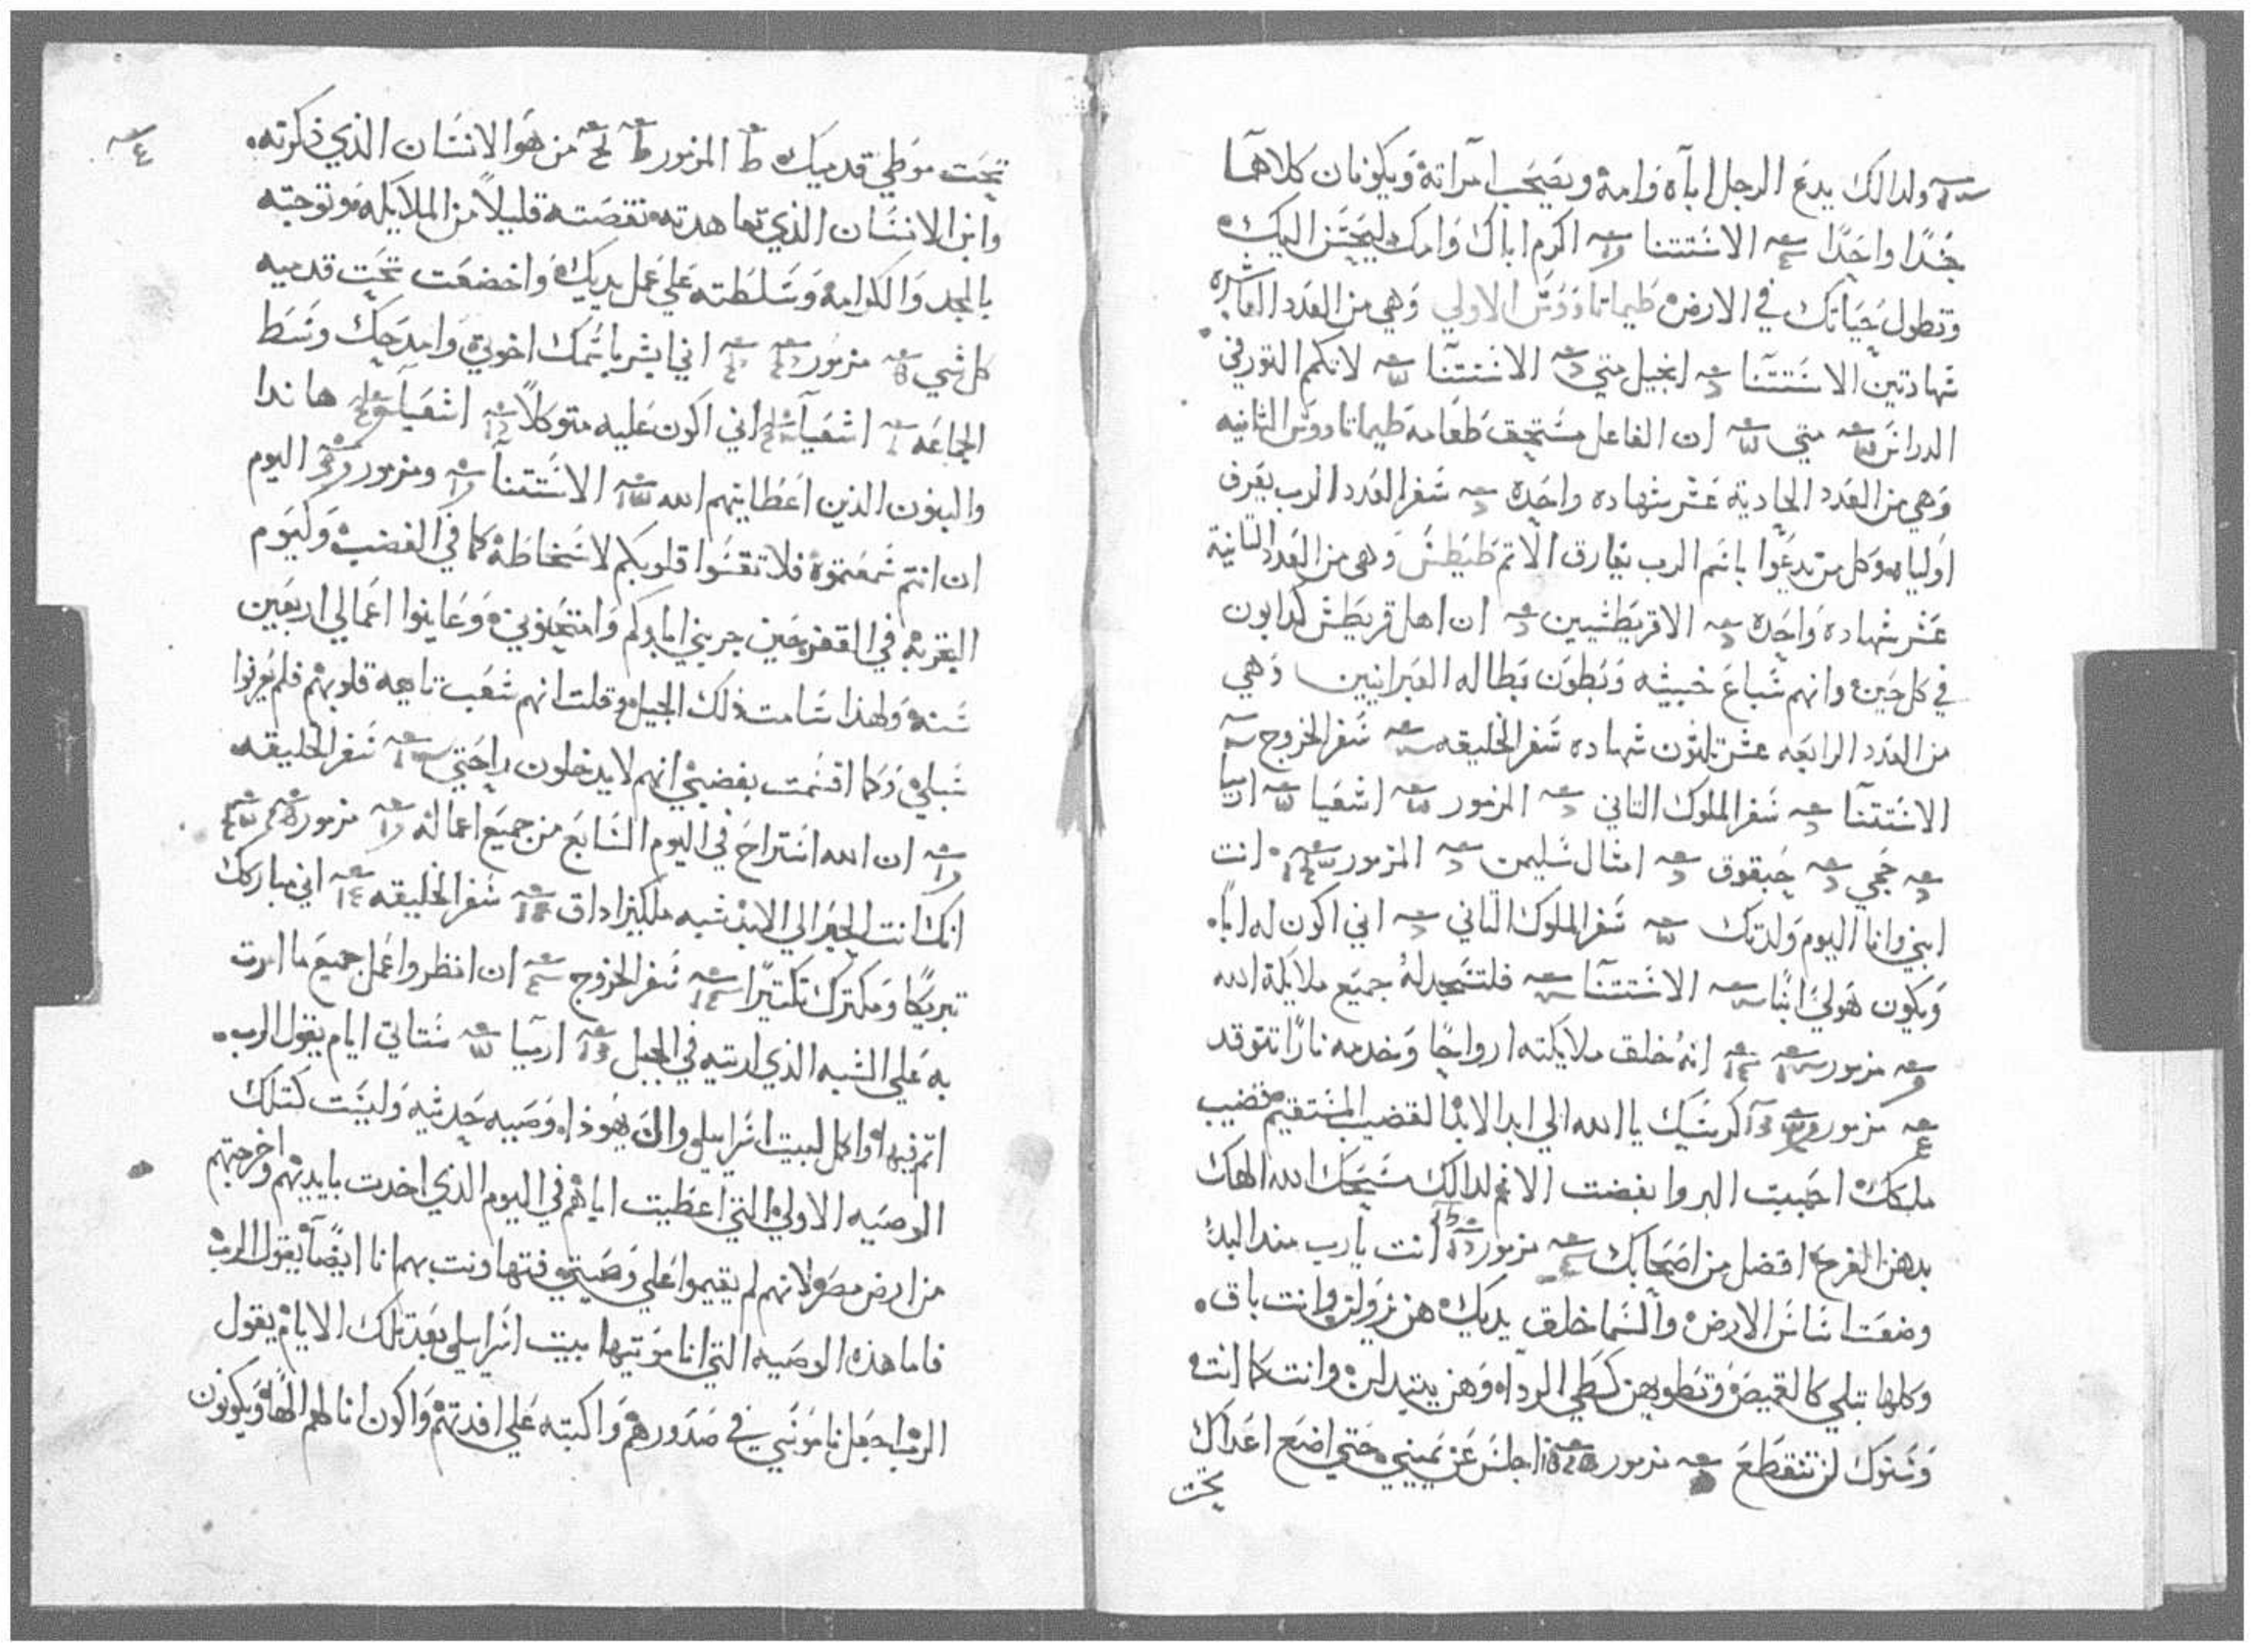 ولدالك يدع الرجل اباه وامه ويصحب امراته ويكونان كلاهما
جسدًا واحدًا الاستتنا اكرم اباك وامك ليحسن اليك
وتطول حياتك في الارض طيماتاووس الاولي وهي من العدد العاشره
شهادتين الاستتنا انجيل متي الاستتنا لاتكم الثور في
الدراس متي ان الفاعل مستحق طعامه طيماتاووس الثانيه
وهي من العدد الحادية عشر شهاده واحده سفر العدد الرب يعرف
اولياه وكل من تدعوا باسم الرب يفارق الاتم طيطس وهي من العدد التانية
عشر شهاده واحده الاقريطشيين ان اهل قريطش كدابون
في كل حين وانهم سباع خبيثه وبطون بطاله العبرانيين وهي
من العدد الرابعه عشر تلتون شهاده سفر الخليقه سفر الخروج
الاستتنا سفر الملوك التاني المزمور اشعيا ارميا
حجي حبقوق امثال سليمن المزمور انت
ابني وانا اليوم ولدتك سفر الملوك التاني اني اكون له ابًا
ويكون هو لي ابنًا الاستتنا فلتسجد له جميع ملايكة الله
مزمور انه خلق ملايكته ارواحًا وخدمه نارًا تتوقد
مزمور كرسيك يا الله الي ابد الابد القضيب المستقيم قضيب
ملكك احببت البر وابغضت الاتم لدالك مسحك الله الهك
بدهن الفرح افضل من اصحابك مزمور انت يارب مند البدء
وضعت اساس الارض والسما خلق يديك هن يزولن وانت باق
وكلها تبلي كالقميص وتطويهن كطي الرداء وهن يتبدلن وانت كما انت
وسنوك لن تنقطع مزمور اجلس عن يميني حتي اضع اعداك
تحت
تحت موطي قدميك المزمور من هو الانسان الذي ذكرته
وابن الانسان الذي تعاهدته نقصته قليلاً من الملايكه وتوجته
بالمجد والكرامه وسلطته علي عمل يديك واخضعت تحت قدميه
كل شي مزمور اني ابشر باسمك اخوتي وامدحك وسط
الجماعه اشعيا اني اكون عليه متوكلاً اشعيا هاندا
والبنون الذين اعطانيهم الله الاستتنا ومزمور اليوم
ان انتم سمعتموه فلا تقسوا قلوبكم لاسخاطه كما في الغضب وكيوم
التجربه في القفر حين جربني اباوكم وامتحنوني وعاينوا اعمالي اربعين
سنه ولهذا سامت ذلك الجيل وقلت انهم شعب تايهه قلوبهم فلم يعرفوا
سبلي وكما اقسمت بغضبي انهم لا يدخلون راحتي سفر الخليقه
ان الله استراح في اليوم السابع من جميع اعماله مزمور
انك انت الحبر الي الابد شبه ملكيزاداق سفر الخليقه اني مباركك
تبريكًا ومكترك تكتيرًا سفر الخروج ان انظر واعمل جميع ما امرت
به علي الشبه الذي اريته في الجبل ارميا ستاتي ايام يقول الرب
اتم فيها واكمل لبيت اسراييل وال يهوذا وصيه حديثه وليست كتلك
الوصيه الاولي التي اعطيت اباهم في اليوم الذي اخدت بايديهم واخرجتهم
من ارض مصر لانهم لم يقيموا علي وصيتي فتهاونت بهم انا ايضًا يقول الرب
فاما هذه الوصيه التي انا موتيها بيت اسراييل بعد تلك الايام يقول
الرب اجعل ناموسي في صدورهم واكتبه علي افدتهم واكون انا لهم الهًا ويكونون